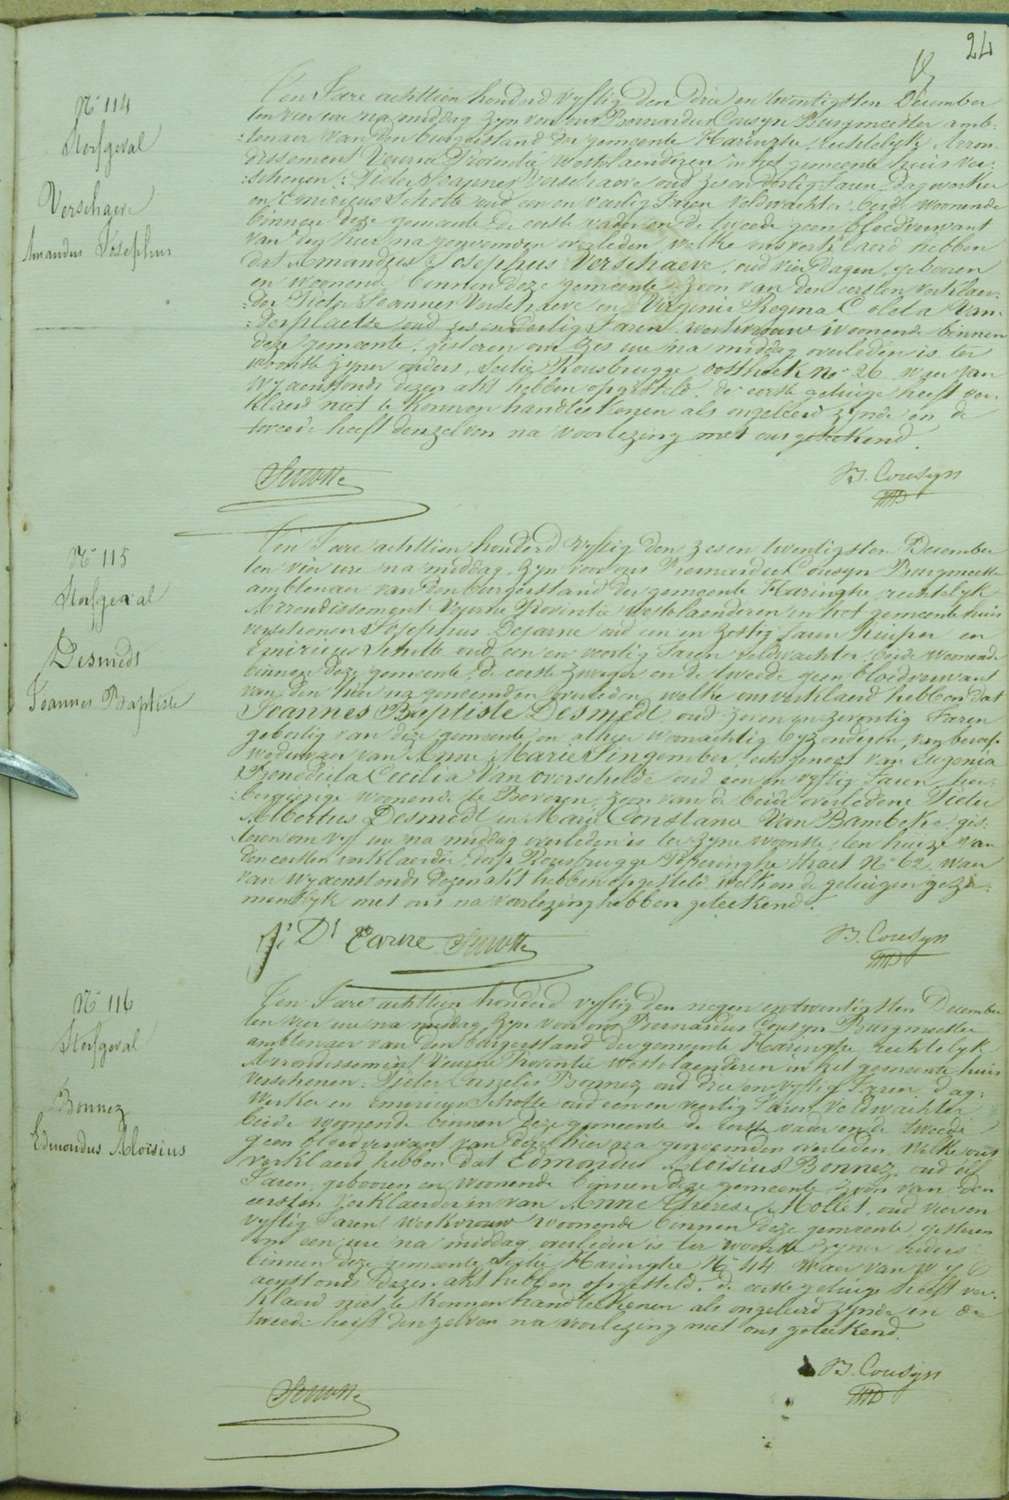 24
N° 114
Sterfgeval
Verschaeve
Amandus Josephus
Ten Jare achttien honderd vyftig den drie en twentigsten December
ten vier ure na middag zyn voor ons Bernardus Cousyn Burgmeester amb-
tenaer van den burgerstand der gemeente Haringhe, rechtelyk Arron-
dissement Veurne Provintie Westvlaenderen in het gemeente huis ver-
schenen: Pieter Joannes Verschaeve oud zes en dertig Jaren dagwerker
en Emericus Scholte oud een en veertig Jaren veldwachter, beide woonende
binnen deze gemeente de eerste vader en de tweede geen bloedverwant
van den hier na genoemden overleden welke ons verklaerd hebben
dat Amandus Josephus Verschaeve, oud vier dagen, gebooren
en woonende binnen deze gemeente zoon van den eersten verklaer-
der Pieter Joannes Verschaeve en Virginie Regina Coleta Van-
derplaetse oud zes en dertig Jaren, werkvrouw woonende binnen
deze gemeente, gisteren om zes ure na middag overleden is ter
woonste zyner ouders, Sectie Rousbrugge oosthoek N° 26 waer van
wy aenstonds dezen akt hebben opgesteld. de eerste getuige heeft ver-
klaerd niet te konnen handteekenen als ongeleerd zynde en de
tweede heeft denzelven na voorlezing met ons geteekend.
B. Cousyn
N° 115
Sterfgeval
Desmedt
Joannes Baptiste
Ten Jare achttien honderd vyftig den zes en twentigsten December
ten vier ure na middag, zyn voor ons Bernardus Cousyn Burgmeester
ambtenaer van den burgerstand der gemeente Haringhe, rechtelyk
Arrondissement Veurne Provintie Westvlaenderen in het gemeente huis
verschenen Josephus Decarne oud een en zestig Jaren kuiper en
Emericus Scholte oud een en veertig Jaren veldwachter beide woonende
binnen deze gemeente, de eerste zwager en de tweede geen bloedverwant
van den hier na genoemden overleden welke ons verklaerd hebben dat
Joannes Baptiste Desmedt, oud zeven en zeventig Jaren
geboortig van deze gemeente en alhier woonachtig byzonderen, van beroep
weduwaer van Anne Marie Singomber, echtgenoot van Eugenia
Benedicta Cecilia Van overschelde oud een en vyftig Jaren her-
bergierige woonende te Beveren, zoon van de beide overledene Pieter
Albertus Desmedt en Marie Constance Van Bambeke, gis-
teren om vyf ure na middag overleden is ter zyne woonste, ten huize van
den eersten verklaerder dorp Rousbrugge Poperinghe straet N° 62 waer
van wy aenstonds dezen akt hebben opgesteld welk en de getuigen geza-
mentlyk met ons na voorlezing hebben geteekend.
B. Cousyn
N° 116
Sterfgeval
Bonnez
Edmondus Aloisius
Ten Jare achttien honderd vyftig den negen en twentigsten December
ten vier ure na middag, zyn voor ons Bernardus Cousyn Burgmeester
ambtenaer van den burgerstand der gemeente Haringhe rechtelyk
Arrondissement Veurne Provintie Westvlaenderen in het gemeente huis
verschenen: Pieter Cornelis Bonnez oud drie en vyftig Jaren, dag-
werker en Emericus Scholte oud een en veertig Jaren veldwachter
beide woonende binnen deze gemeente de eerste vader en de tweede
geen bloedverwant van den hier na genoemden overleden welke ons
verklaerd hebben dat Edmondus Aloisius Bonnez, oud
Jaren, gebooren en woonende binnen deze gemeente zoon van den
eersten verklaerder en van Anne Therese Mollet, oud vier en
vyftig Jaren werkvrouw woonende binnen deze gemeente, gisteren
om een ure na middag overleden is ter woonste zyner ouders
binnen deze gemeente Sectie Haringhe N° 44 waer van wy
aenstonds dezen akt hebben opgesteld, de eerste getuige heeft ver-
klaerd niet te konnen handteekenen als ongeleerd zynde en de
tweede heeft denzelven na voorlezing met ons geteekend.
B. Cousyn